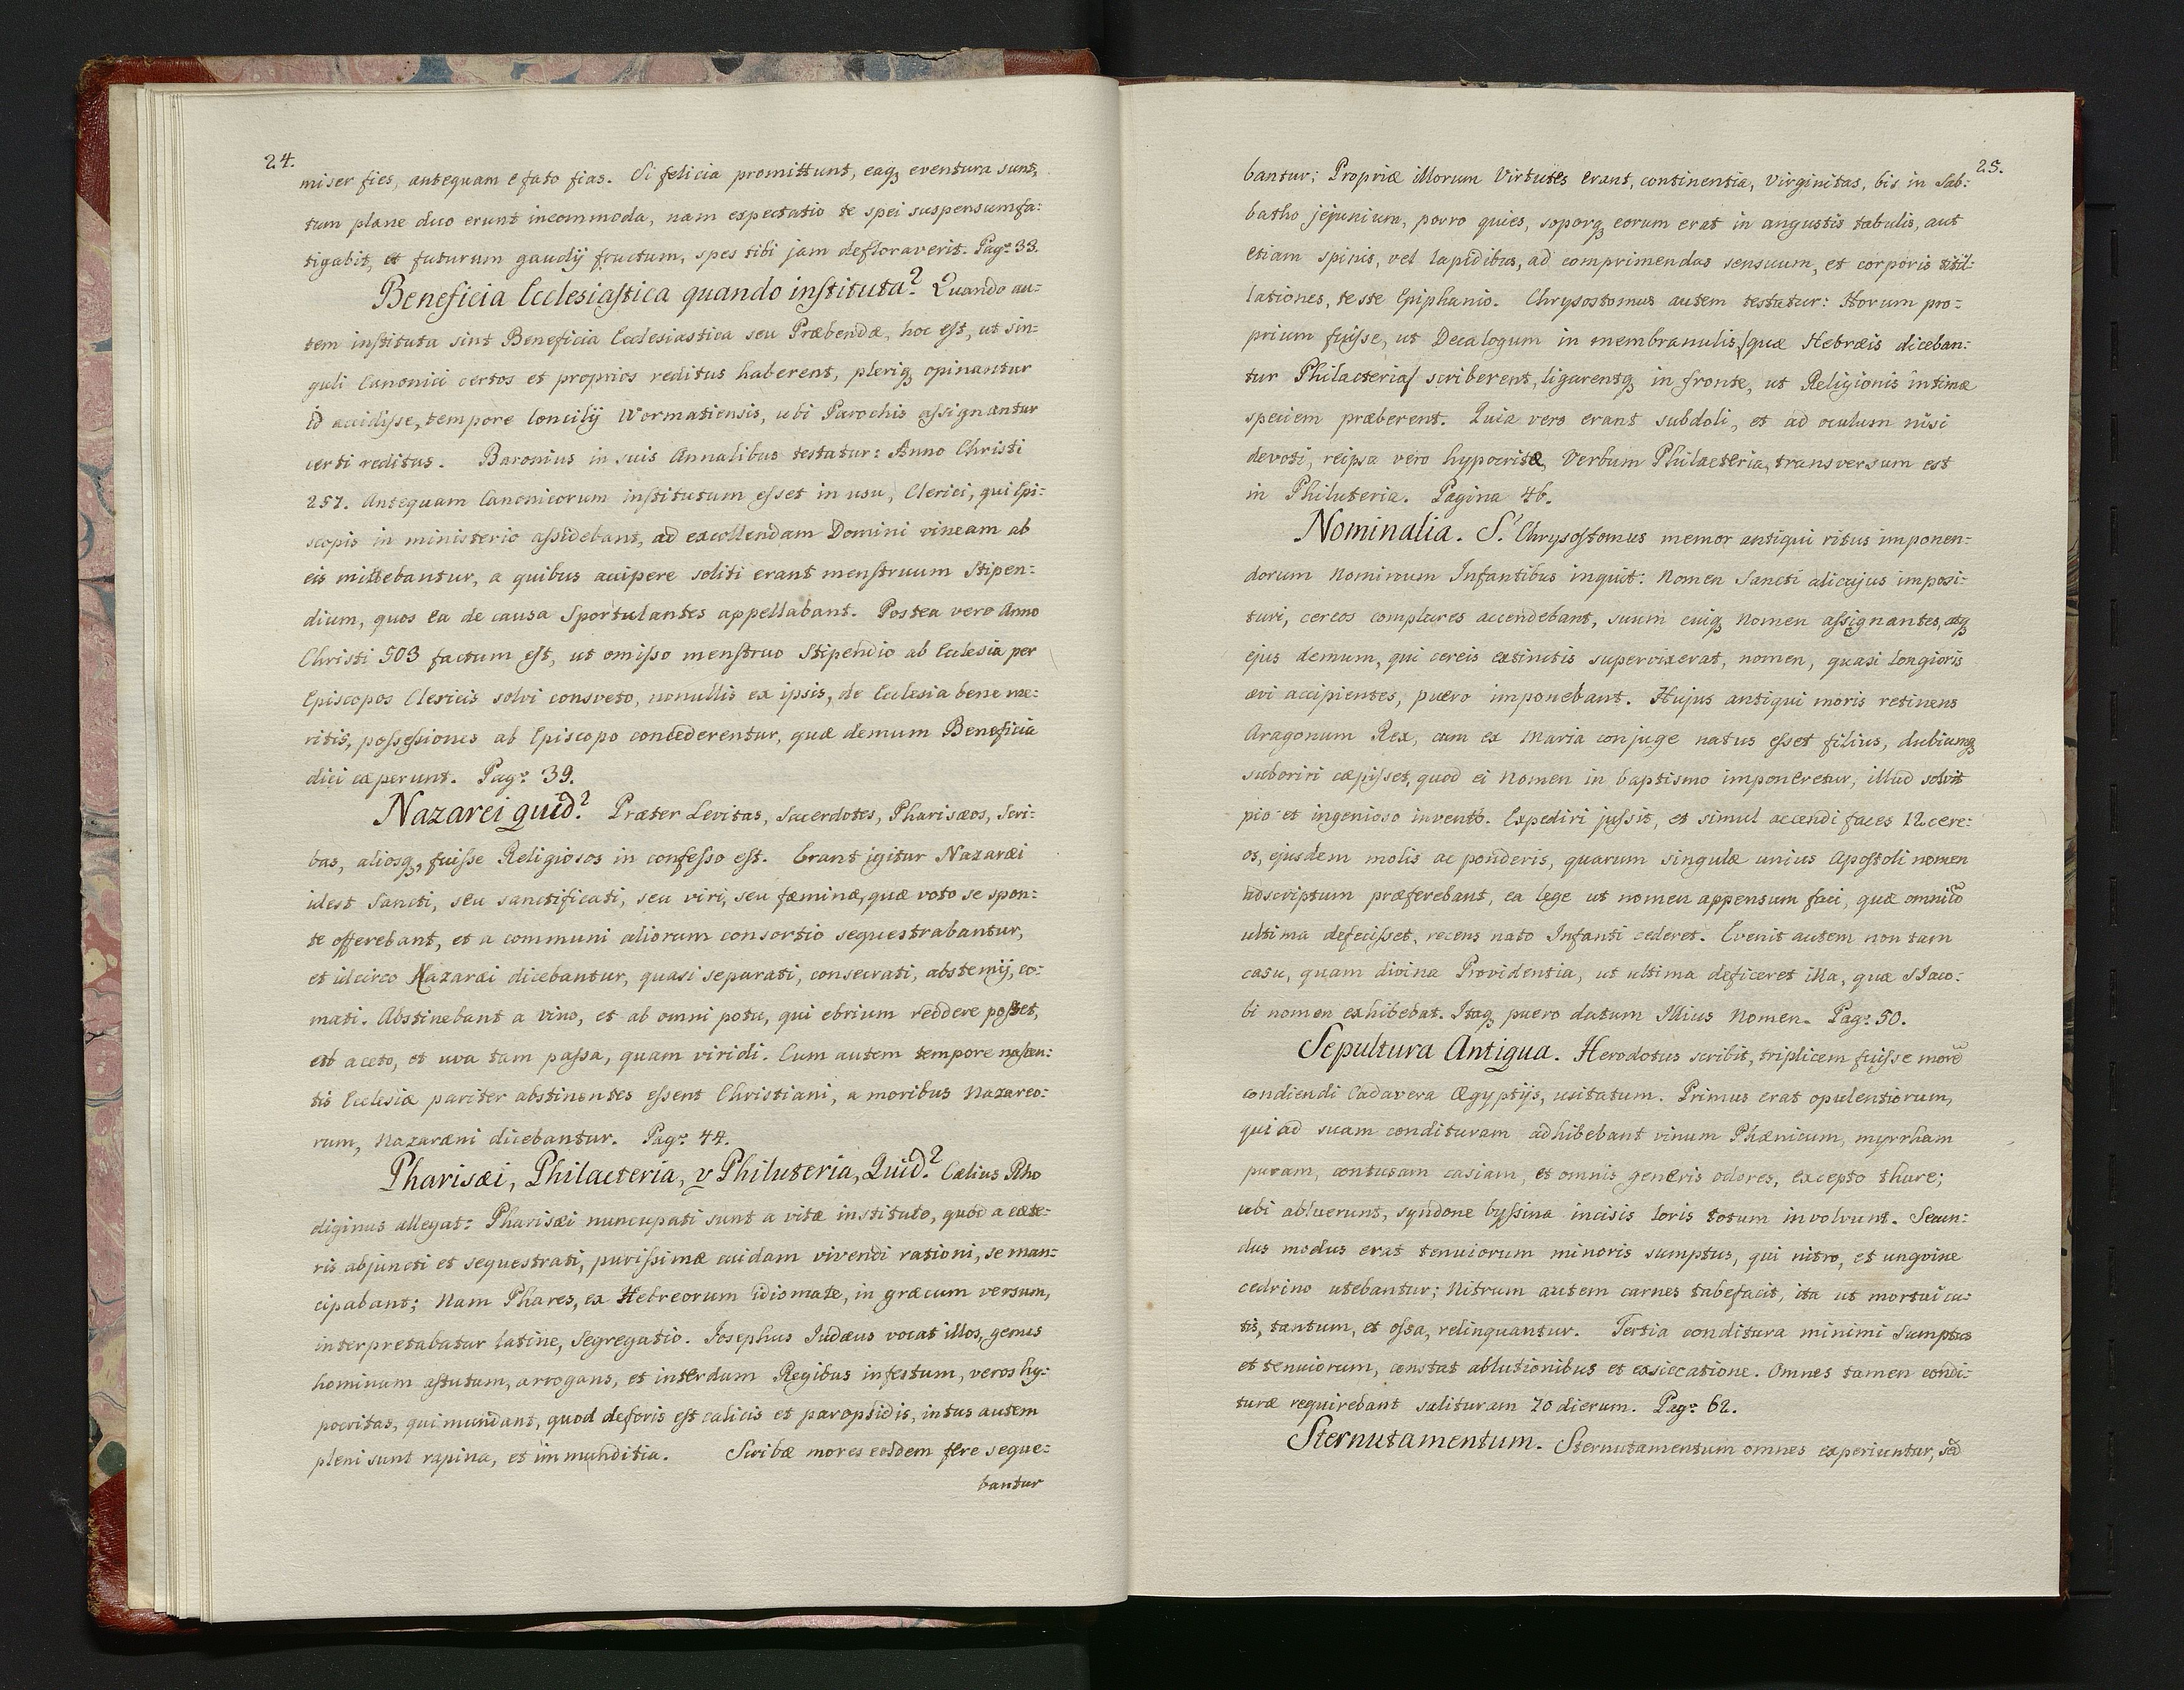 24.
miser fies, antequam e fato fias. Si felicia promittunt, eaq, eventura sunt,
tum plane duo erunt incommoda, nam expectatio te spei suspensum fa:
tigabit, et futurum gaudij fructum, spes tibi jam defloraverit. Pag: 33.
Beneficia Ecclesiastica quando instituta? Quando au=
tem instituta sint Beneficia Ecclesiastica seu Præbendæ, hoc est, ut sin=
guli Canonici certos et proprios reditus haberent, pleriq, opinantur
id accidisse, tempore Concilij Wormatiensis, ubi Parochis assignantur
certi reditus. Baronius in suis Annalibus testatur: Anno Christi
257. Antequam Canonicorum institutum esset in usu, Clerici, qui Epi:
scopis in ministerio assidebant, ad excollendam Domini vineam ab
eis mittebantur, a quibus accipere soliti erant menstruum Stipen:
dium, quos ea de causa Sportulantes appellabant. Postea vero Anno
Christi 503 factum est, ut omisso menstruo Stipendio ab Ecclesia per
Episcopos Clericis solvi consveto, nonullis ex ipsis, de Ecclesia bene me:
ritis, possessiones ab Episcopo concederentur, quæ demum Beneficia
dici cæperunt. Pag: 39.
Nazarei quid? Præter Levitas, Sacerdotes, Pharisæos, Scri:
bas, aliosq, fuisse Religiosos in confesso est. Erant jgitur Nazaræi
idest Sancti, seu sanctificati, seu viri, seu fæminæ, quæ voto se spon:
te offerebant, et a communi aliorum consortio sequestrabantur,
et idcirco Nazaræi dicebantur, quasi separati, consecrati, abstemij, co:
mati. Abstinebant a vino, et ab omni potu, qui ebrium reddere posset,
ab aceto, et uva tam passa, quam viridi. Cum autem tempore nascen:
tis Ecclesiæ pariter abstinentes essent Christiani, a moribus Nazareo:
rum, Nazaræni dicebantur. Pag: 44.
Pharisæi, Philacteria, v Philuteria, Quid? Cælius Rho
diginus allegat: Pharisæi nuncupati sunt a vitæ instituto, quod a cæte:
ris abjuncti et sequestrati, purissimæ cuidam vivendi rationi, se man:
cipabant; Nam Phares, ex Hebreorum idiomate, in græcum versum,
interpretabatur latine, Segregatio. Josephus Judæus vocat illos, genus
hominum astutum, arrogans, et interdum Regibus infestum, veros hy:
pocritas, qui mundant, quod deforis est calicis et paropsidis, intus autem
pleni sunt rapina, et immunditia. Scribæ mores eosdem fere seque:
bantur
25.
bantur; Propriæ illorum Virtutes erant, continentia, Virginitas, bis in Sab:
batho jejunium, porro quies, soporq, eorum erat in angustis tabulis, aut
etiam spinis, vel lapidibus, ad comprimendas sensuum, et corporis titil:
lationes, teste Epiphanio. Chrysostomus autem testatur: Horum pro=
prium fuisse, ut Decalogum in membranulis /quæ Hebræis diceban:
tur Philacteria/ scriberent, ligarentq, in fronte, ut Religionis intimæ
speciem præberent. Quia vero erant subdoli, et ad oculum nisi
devoti, reipsa vero hypocritæ, Verbum Philacteria, transversum est
in Philuteria. Pagina 46.
Nominalia. S. Chrysostomus memor antiqui ritus imponen:
dorum Nominum Infantibus inquit: Nomen Sancti alicujus imposi:
turi, cereos complures accendebant, suum cuiq, nomen assignantes, atq,
ejus demum, qui cereis extinctis supervixerat, nomen, quasi longioris
ævi accipientes, puero imponebant. Hujus antiqui moris retinens
Aragonum Rex, cum ex Maria conjuge natus esset filius, dubiumq,
suboriri cæpisset, quod ei Nomen in baptismo imponeretur, illud solvit
pio et ingenioso invento. Expediri jussit, et simul accendi faces 12 cere:
os, ejusdem molis ac ponderis, quarum singulæ unius Apostoli nomen
adscriptum præferebant, ea lege ut nomen appensum faci, quæ omniū
ultima defecisset, recens nato Infanti cederet. Evenit autem non tam
casu, quam divina Providentia, ut ultima deficeret illa, quæ S Jaco:
bi nomen exhibebat. Itaq, puero datum Illius Nomen. Pag: 50.
Sepultura Antiqua. Herodotus scribit, triplicem fuisse morē
condiendi Cadavera Ægyptijs, usitatum. Primus erat opulentiorum,
qui ad suam condituram adhibebant vinum Phænicum, myrrham
puram, contusam casiam, et omnis generis odores, excepto thure;
ubi abluerunt, syndone byssina incisis loris totum involvunt. Secun:
dus modus erat tenuiorum minoris sumptus, qui nitro, et ungvine
cedrino utebantur; Nitrum autem carnes tabefacit, ita ut mortui cu:
tis, tantum, et ossa, relinquantur. Tertia conditura minimi Sumptus
et tenuiorum, constat ablutionibus et exsiccatione. Omnes tamen condi:
turæ requirebant salituram 70 dierum. Pag: 62.
Sternutamentum. Sternutamentum omnes experiuntur, sed